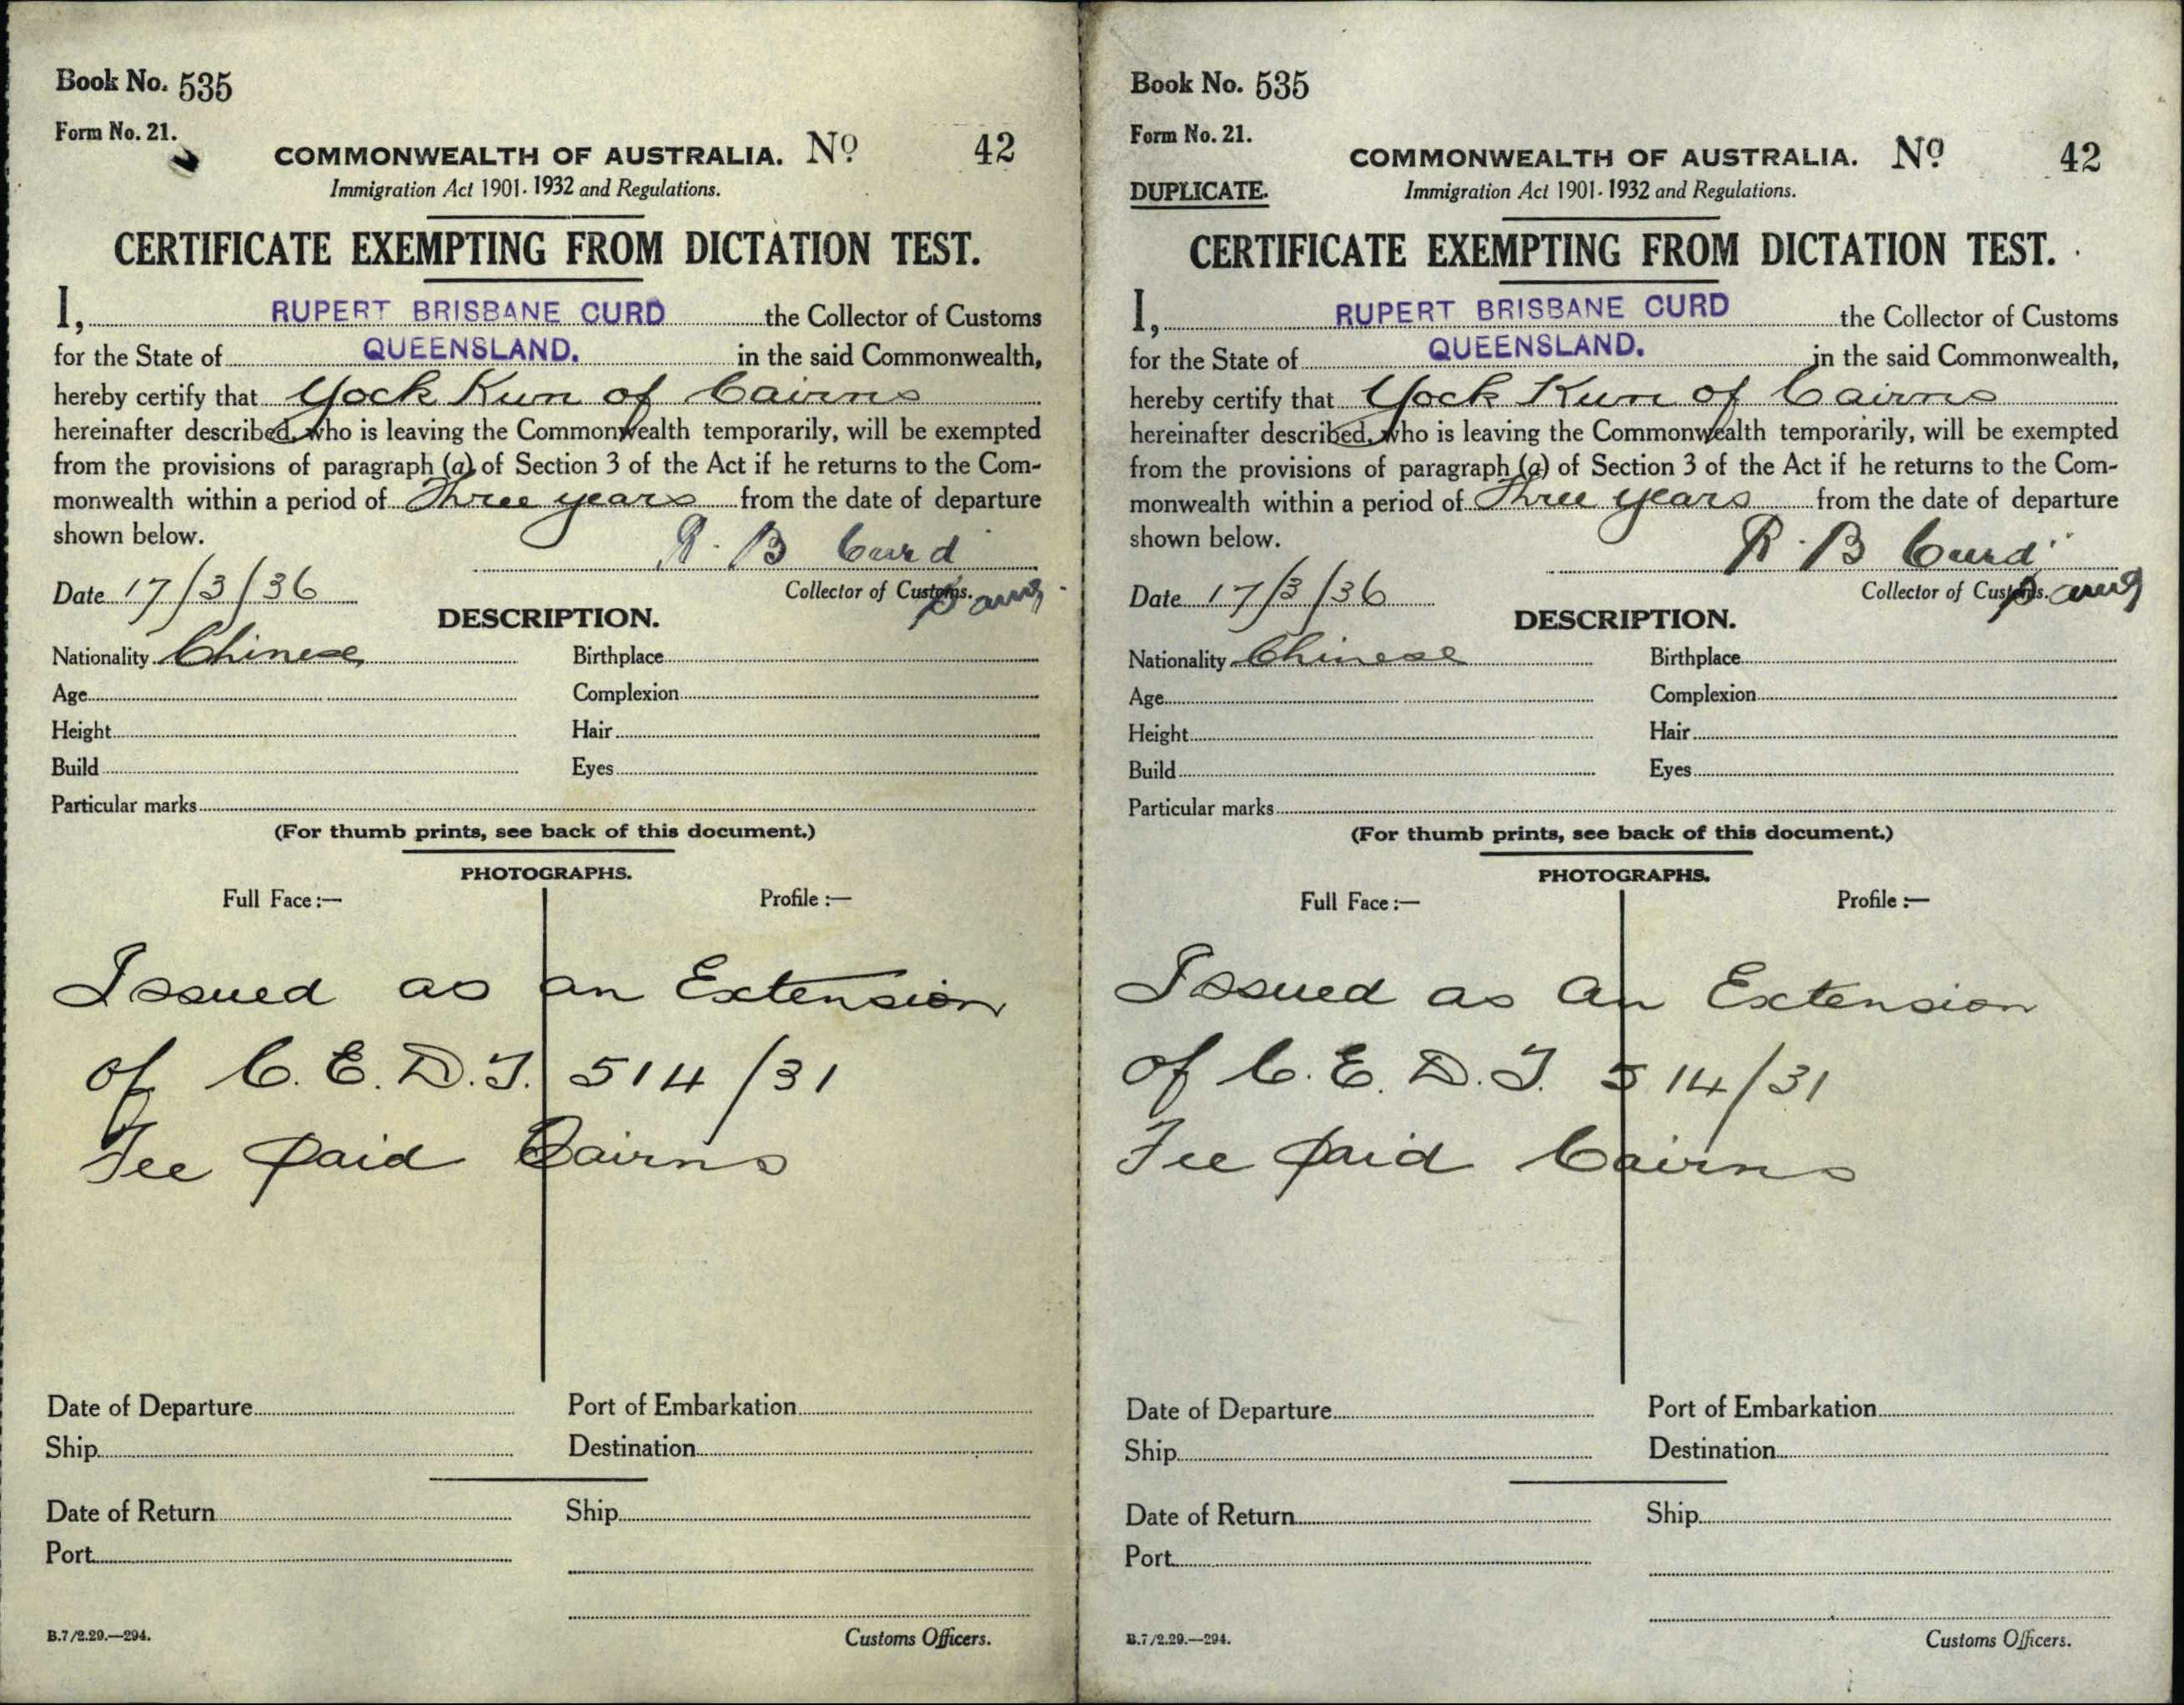 Book No. 535
Form No. 21.
COMMONWEALTH OF AUSTRALIA. No 42
Immigration Act 1901-1932 and Regulations.
CERTIFICATE EXEMPTING FROM DICTATION TEST.
I, RUPERT BRISBANE CURD the Collector of Customs
for the State of QUEENSLAND. in the said Commonwealth,
hereby certify that Yock Kun of Cairns
hereinafter described, who is leaving the Commonwealth temporarily, will be exempted
from the provisions of paragraph (a) of Section 3 of the Act if he returns to the Com-
monwealth within a period of Three years from the date of departure
shown below.
R. B Curd
Collector of Customs.
Date 17/3/36
DESCRIPTION.
Nationality Chinese Birthplace
Age Complexion
Height Hair
Build Eyes
Particular marks
(For thumb prints, see back of this document.)
PHOTOGRAPHS.
Full Face:— Profile:—
Issued as an Extension
of C.E.D.T. 514/31
Fee paid Cairns
Date of Departure Port of Embarkation
Ship Destination
Date of Return Ship
Port
B.7/2.29.—294. Customs Officers.
Book No. 535
Form No. 21.
COMMONWEALTH OF AUSTRALIA. No 42
DUPLICATE. Immigration Act 1901-1932 and Regulations.
CERTIFICATE EXEMPTING FROM DICTATION TEST.
I, RUPERT BRISBANE CURD the Collector of Customs
for the State of QUEENSLAND. in the said Commonwealth,
hereby certify that Yock Kun of Cairns
hereinafter described, who is leaving the Commonwealth temporarily, will be exempted
from the provisions of paragraph (a) of Section 3 of the Act if he returns to the Com-
monwealth within a period of Three years from the date of departure
shown below.
R. B Curd
Collector of Customs.
Date 17/3/36
DESCRIPTION.
Nationality Chinese Birthplace
Age Complexion
Height Hair
Build Eyes
Particular marks
(For thumb prints, see back of this document.)
PHOTOGRAPHS.
Full Face:— Profile:—
Issued as an Extension
of C.E.D.T. 514/31
Fee paid Cairns
Date of Departure Port of Embarkation
Ship Destination
Date of Return Ship
Port
B.7/2.29.—294. Customs Officers.